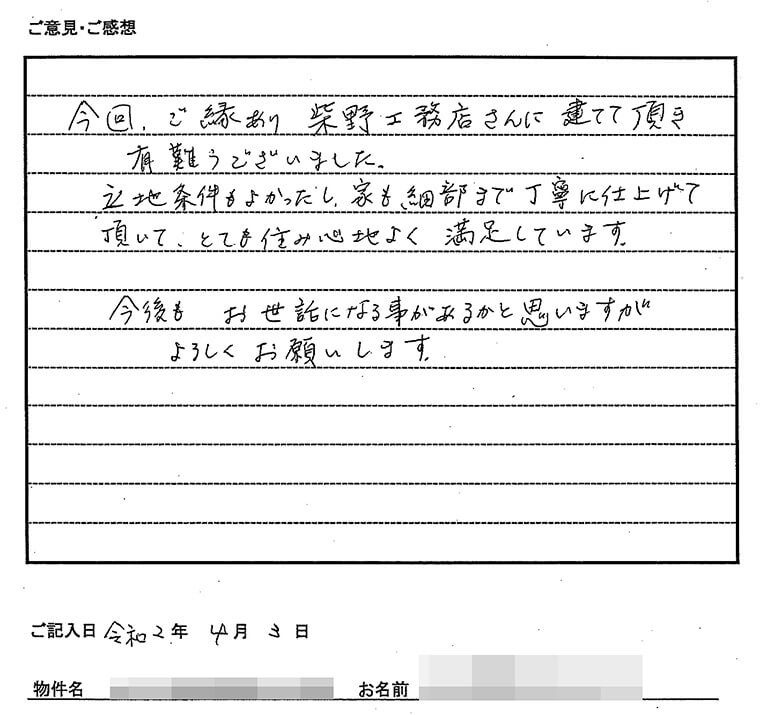 ご意見・ご感想
今回、ご縁あり 柴野工務店さんに 建てて頂き
有難うございました。
立地条件もよかったし、家も細部まで丁寧に仕上げて
頂いて、とても住み心地よく 満足しています。
今後も お世話になる事があるかと思いますが
よろしくお願いします。
ご記入日 令和2年 4月 3日
物件名 お名前